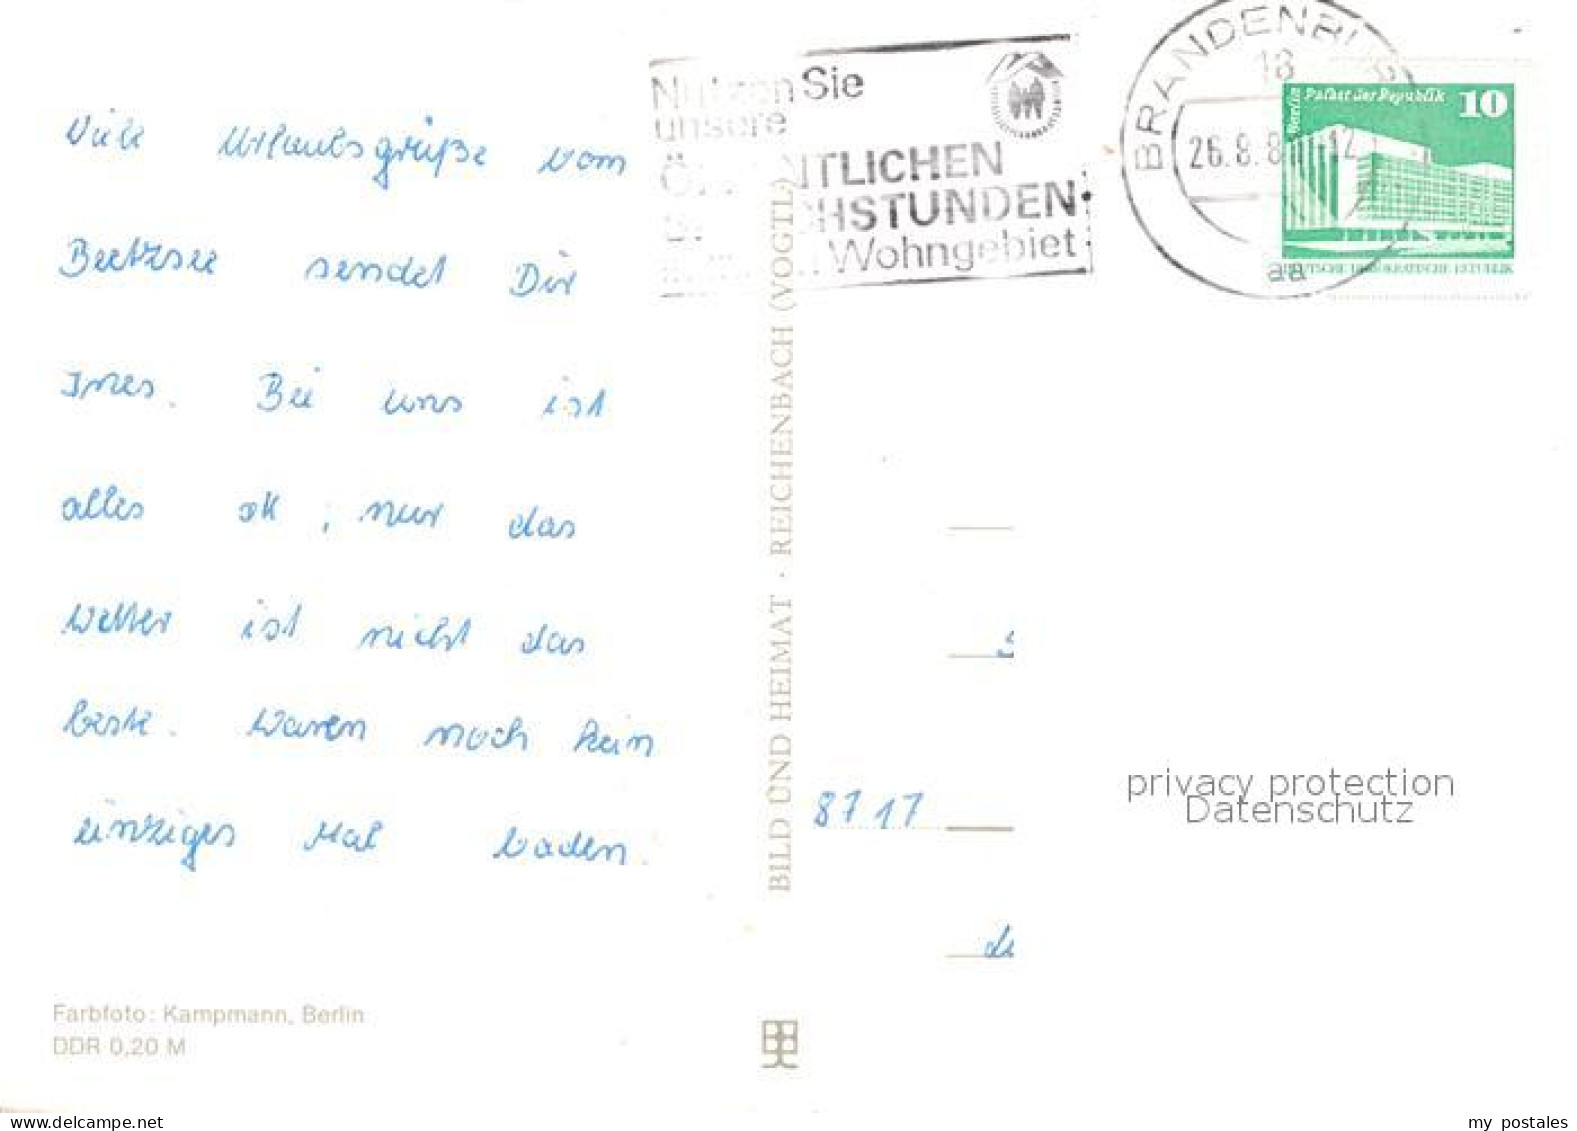 Viele Urlaubsgrüße vom
Beetzsee sendet Dir
Ines. Bei uns ist
alles ok, nur das
Wetter ist nicht das
beste. Waren noch kein
einziges Mal baden.
Farbfoto: Kampmann, Berlin
DDR 0,20 M
BILD UND HEIMAT · REICHENBACH (VOGTL)
Nutzen Sie
unsere
ÖFFENTLICHEN
SPRECHSTUNDEN
Wohngebiet
BRANDENBURG
18
26.8.8 -12
aa
Berlin Palast der Republik 10
DEUTSCHE DEMOKRATISCHE REPUBLIK
8717
privacy protection
Datenschutz
www.delcampe.net
my postales